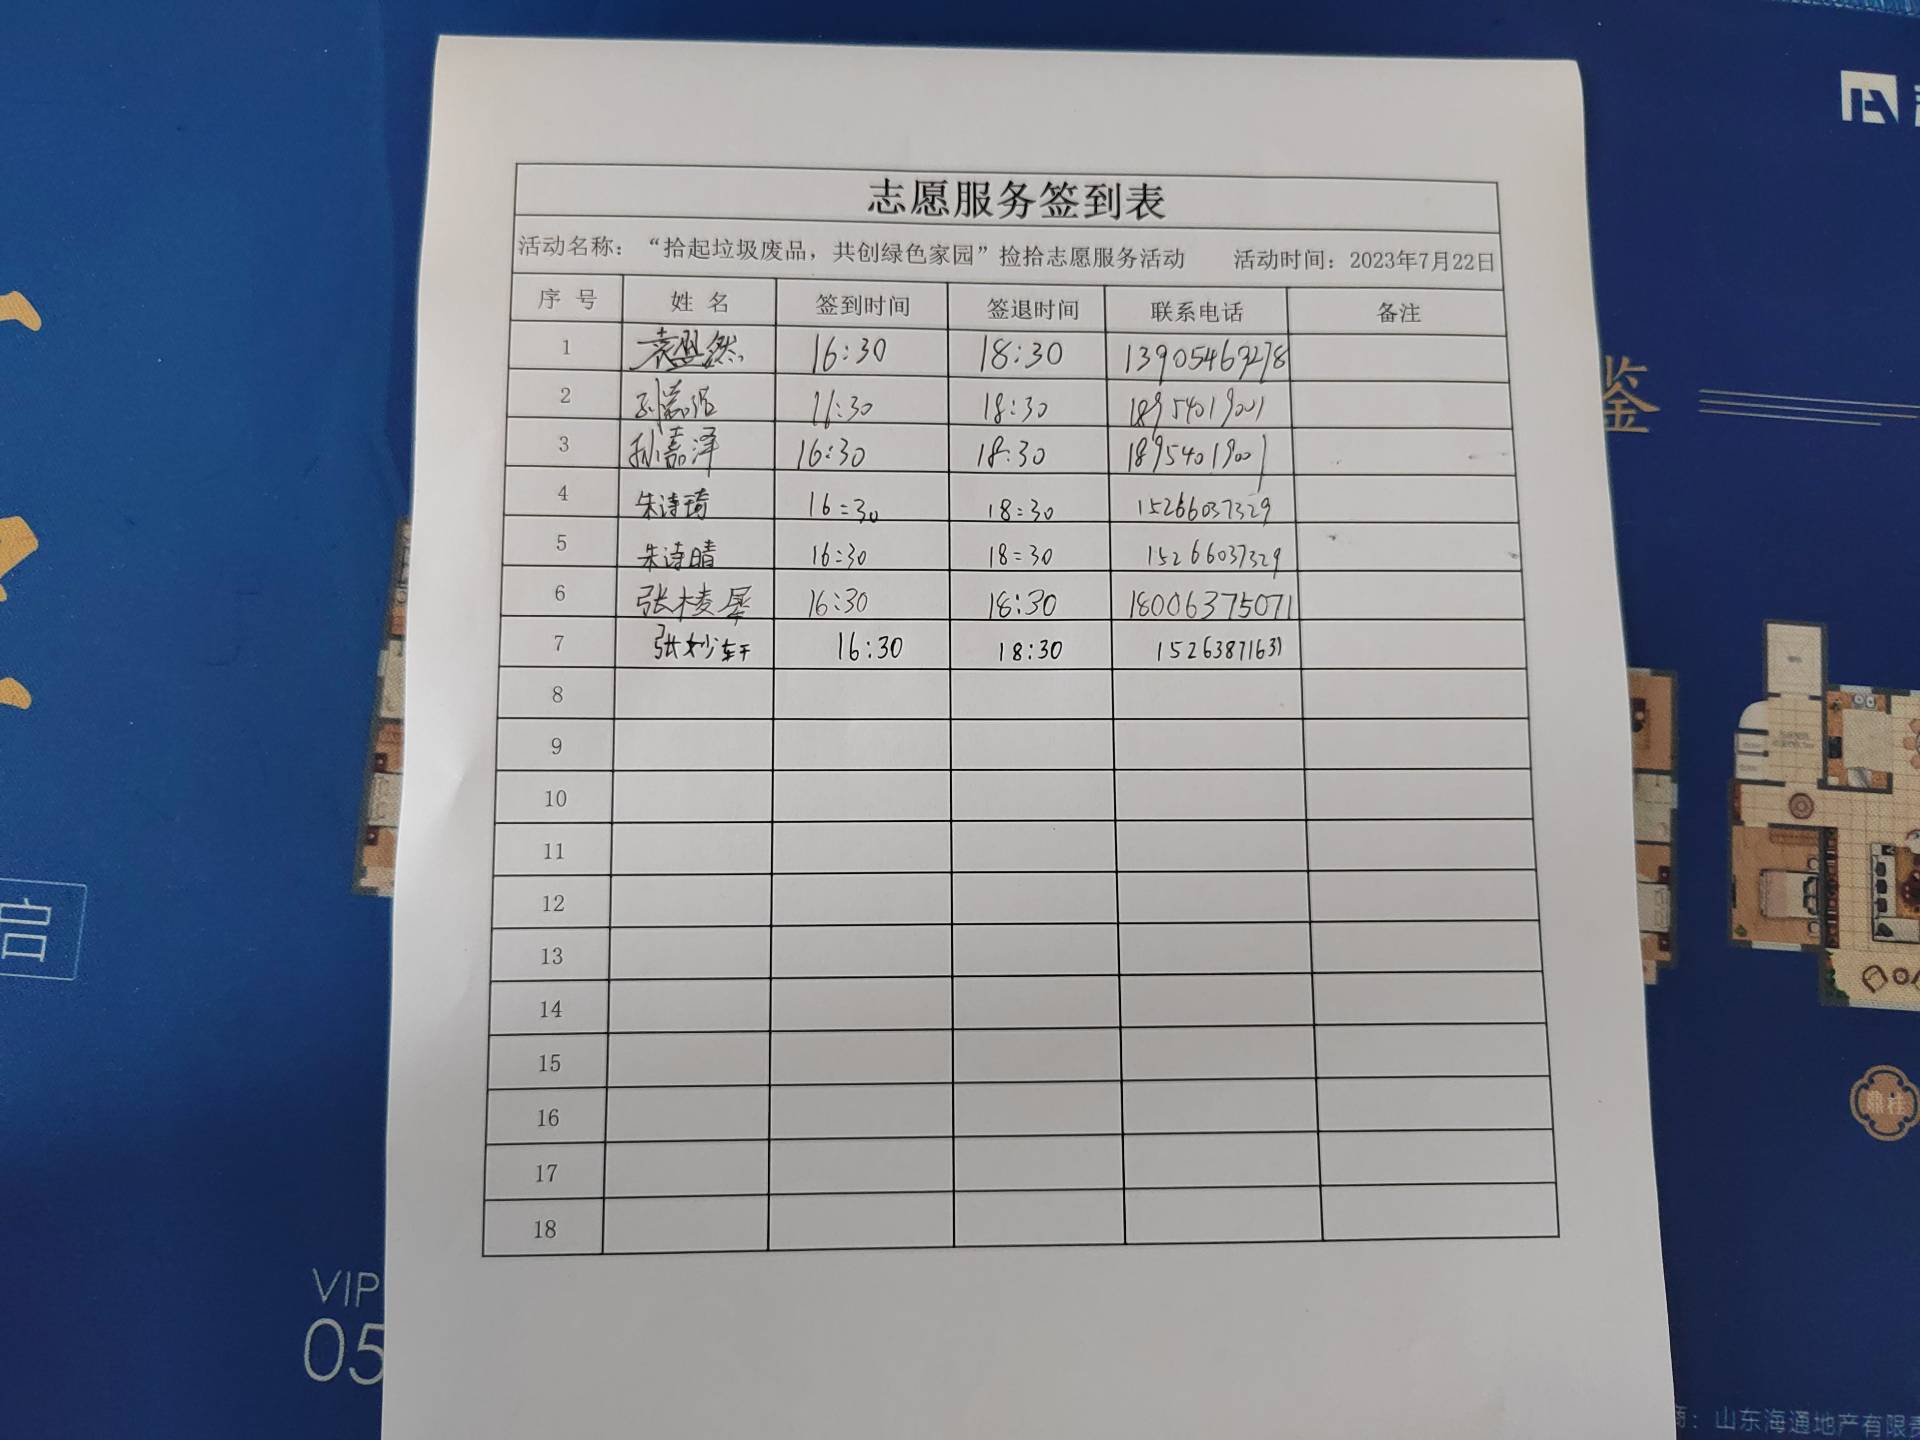 志愿服务签到表
活动名称：“拾起垃圾废品，共创绿色家园”捡拾志愿服务活动 活动时间：2023年7月22日
序 号 姓 名 签到时间 签退时间 联系电话 备注
1 袁盈然 16:30 18:30 13905469278
2 孙嘉 16:30 18:30 18954019001
3 孙嘉泽 16:30 18:30 18954019001
4 朱诗琦 16:30 18:30 15266037329
5 朱诗晴 16:30 18:30 15266037329
6 张棱犀 16:30 18:30 18006375071
7 张妙轩 16:30 18:30 15263871631
8
9
10
11
12
13
14
15
16
17
18
鉴
启
VIP
05
鼎佳
商：山东海通地产有限责